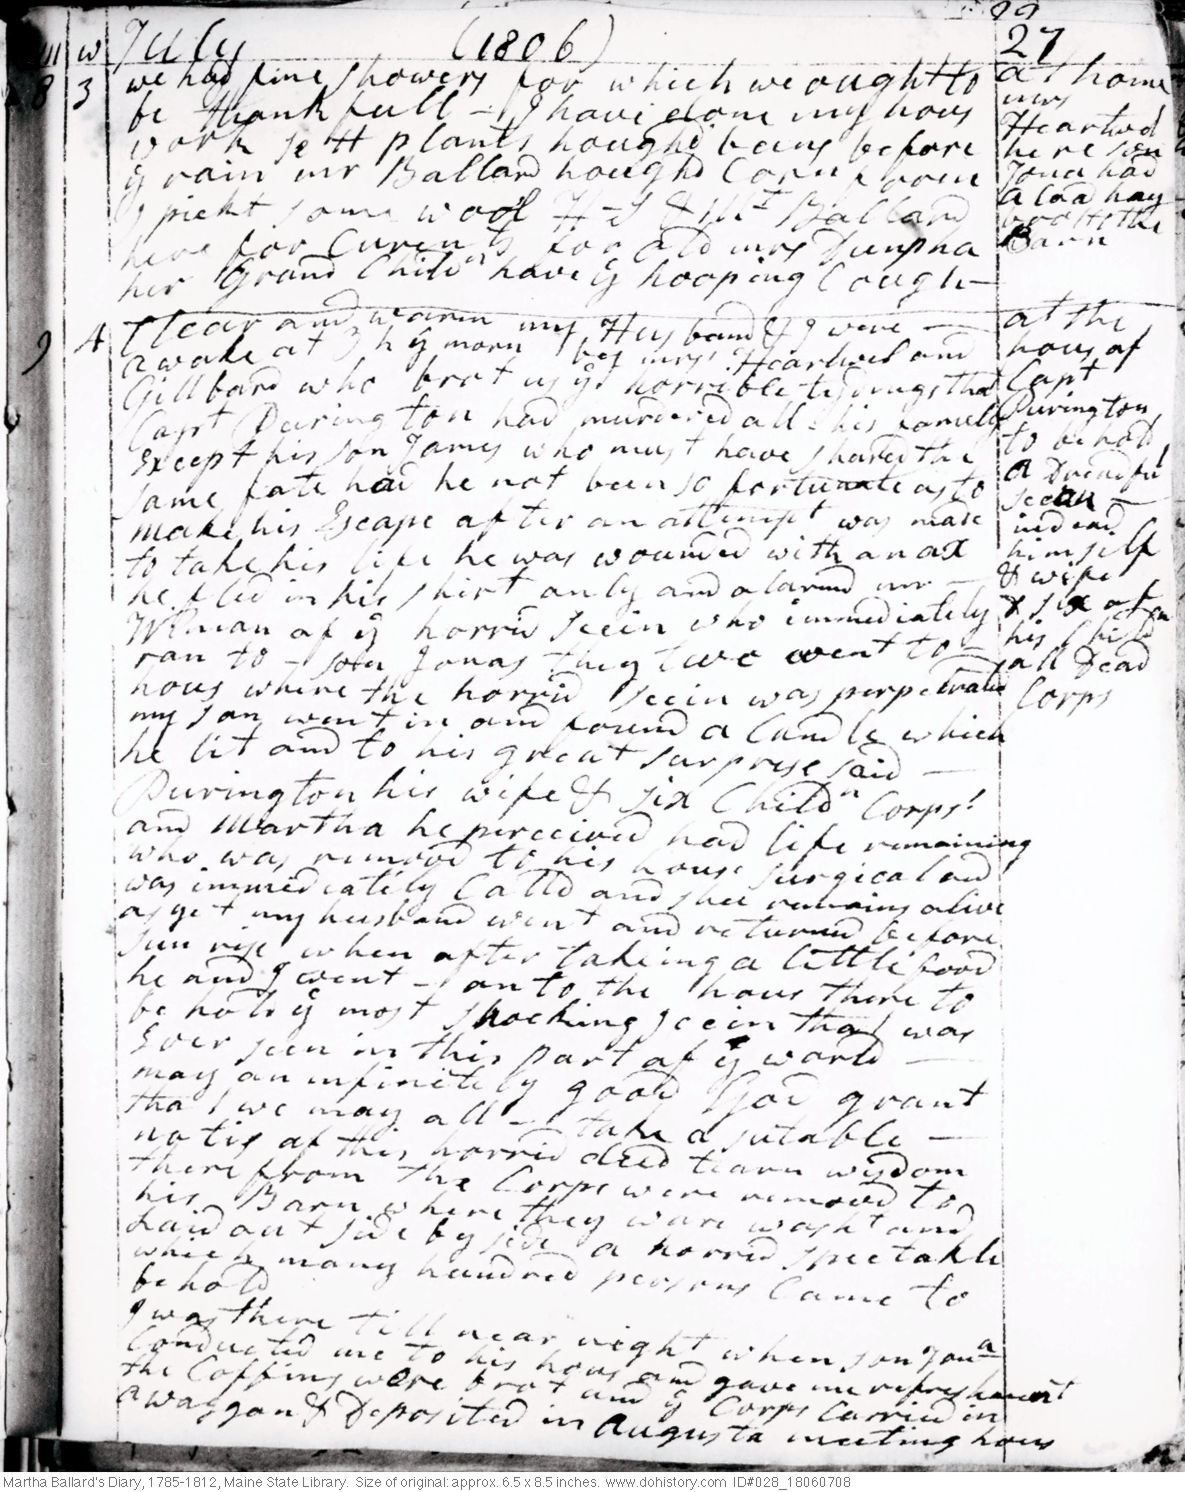 m w July (1806) 27
8 3 we had fine showers for which we ought to
be thankfull - I have done my hous
work sett plants hough'd beens before
ye rain mr Ballard hough'd Corn
I pickt some wool & Mrs Ballard
here for Curents for old mrs Dunpha
her Grand Childn have ye hooping Cough -
at home
mrs
Heartwel
here son
Jona had
a load hay
to the
Barn
9 4 Clear and warm my Husband & I were
awake at 3 h ye morn by mrs Heartwel and
Gillbard who brot us ye horrible tydings that
Capt Purington had murdered all his family
Except his son James who must have shared the
same fate had he not been so fortunate as to
make his Escape after an attempt was made
to take his life he was wounded with an ax
he fled in his shirt only and alarmd mr -
Wiman of ye horrid Scein who immediately
ran to - son Jonas they two went to -
hous where the horrid scein was perpetrated
my son went in and found a Candle which
he lit and to his great surprise said -
Purington his wife & six Childn Corps!
and Martha he perceived had life remaining
who was removd to his house surgical aid
was immediately Calld and shee remains alive
as yet my husband went and returned before
sun rise when after takeing a little food
he and I went - on to the hous there to
behold ye most shocking scein that was
Ever seen in this part of ye world -
may an infinitely good God grant
that we may all - take a sutable -
notis of this horrid deed learn wisdom
there from the Corps were removd to
his Barn where they ware washt and
Laid out side by side a horred spectakle
which many hundred persons Came to
behold
I was there till near night when son Jona
Conducted me to his hous and gave me refreshment
the Coffins were brot and ye Corps Carried in
a waggon & Deposited in Augusta meeting hous
at the
hous of
Capt
Purington
to behold
a Dreadful
scean -
himself
& wife
& six of
his Childn
all Dead
Corps
Martha Ballard's Diary, 1785-1812, Maine State Library. Size of original: approx. 6.5 x 8.5 inches. www.dohistory.com ID#028_18060708